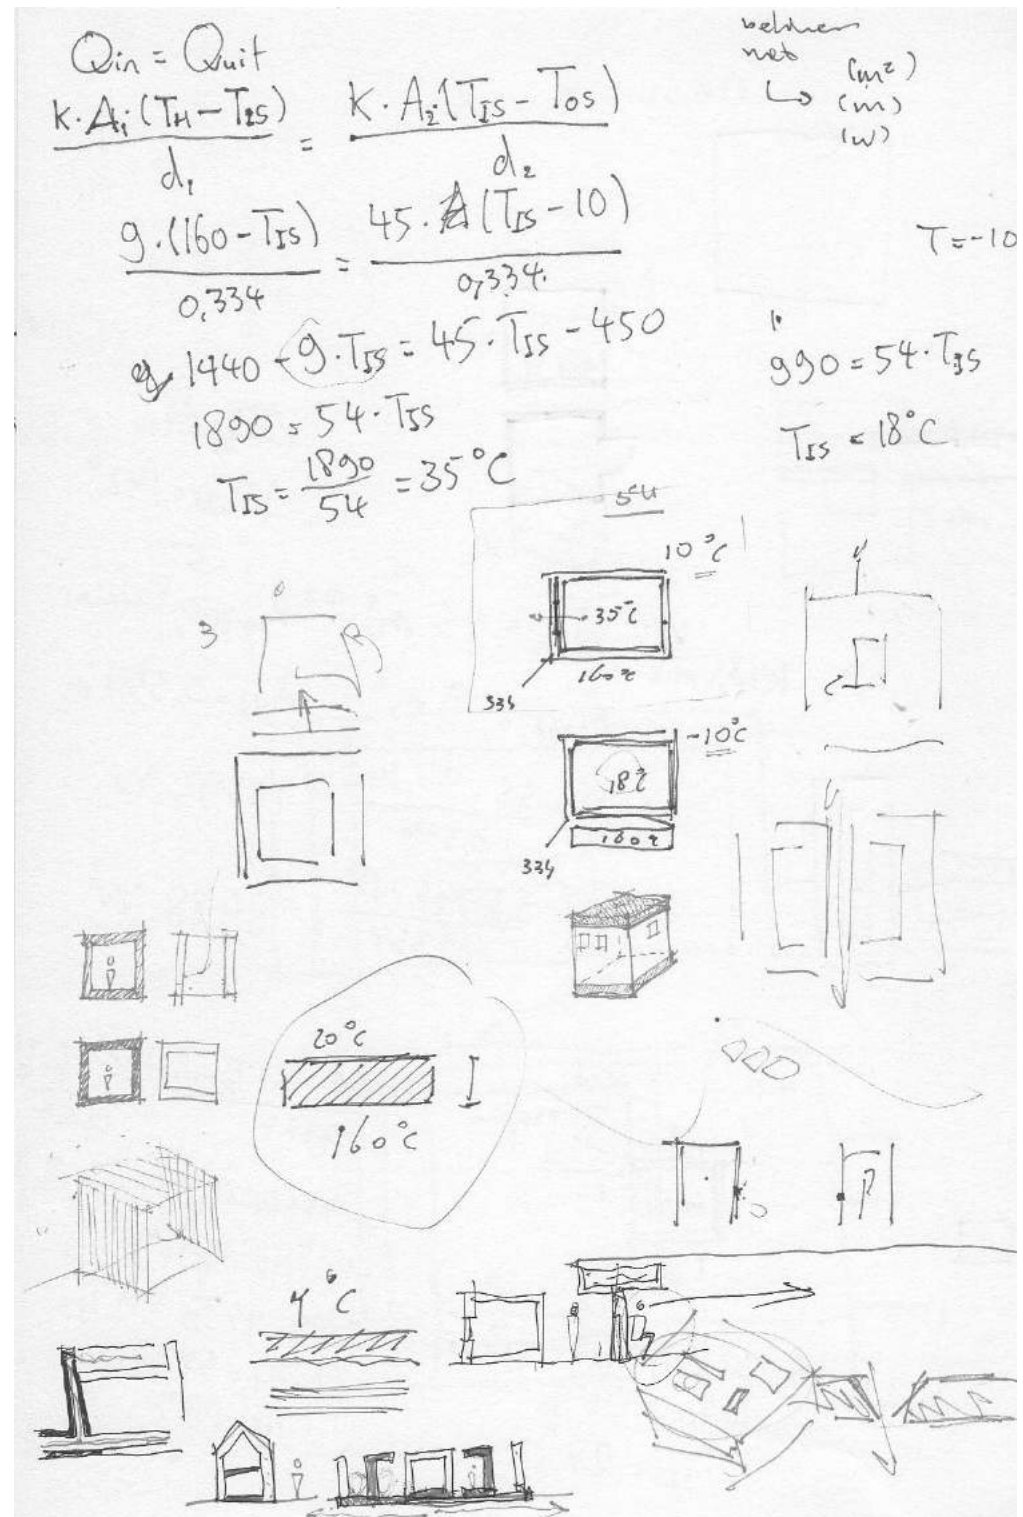 Qin = Quit
K·A₁(TH−TIS) / d₁ = K·A₂(TIS−TOS) / d₂
9·(160−TIS) / 0,334 = 45·(TIS−10) / 0,334
1440 − 9·TIS = 45·TIS − 450
1890 = 54·TIS
TIS = 1890 / 54 = 35°C
net
(m²)
(m)
(w)
T=−10
990 = 54·TIS
TIS = 18°C
54
10°C
35°C
160°C
334
3
−10°C
18°C
160°C
334
20°C
160°C
4°C